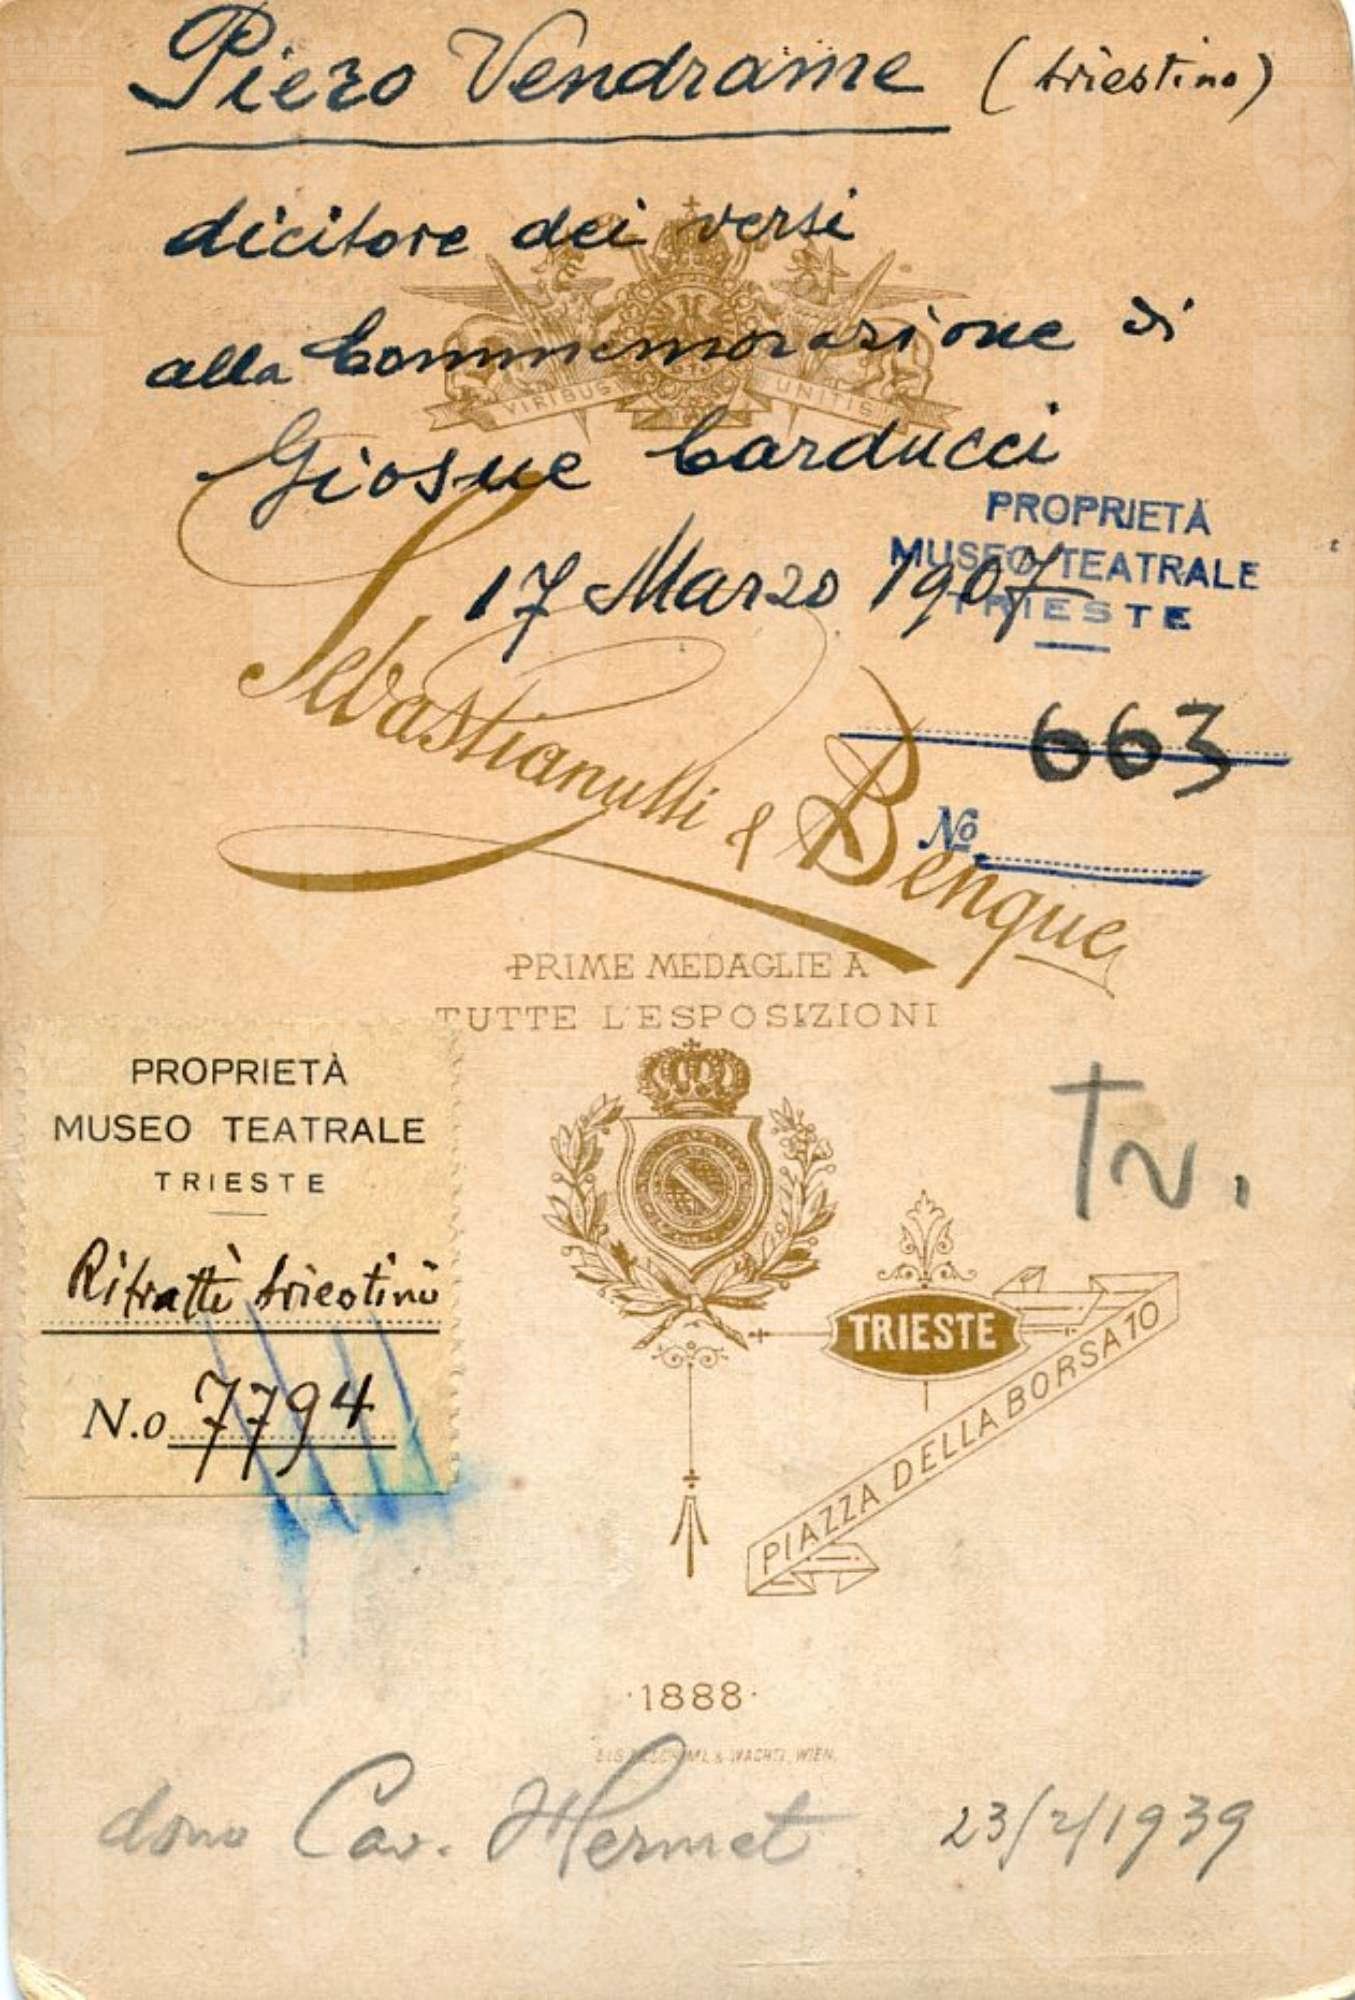 Piero Vendrame (triestino)
dicitore dei versi
alla Commemorazione di
VIRIBUS UNITIS
Giosue Carducci
17 Marzo 1907
PROPRIETÀ
MUSEO TEATRALE
TRIESTE
663
No
Sebastianutti & Benque
PRIME MEDAGLIE A
TUTTE L'ESPOSIZIONI
PROPRIETÀ
MUSEO TEATRALE
TRIESTE
Ritratti triestini
N.o 7794
TRIESTE
PIAZZA DELLA BORSA 10
·1888·
& WACHTL, WIEN.
dono Cav. Hermet 23/2/1939